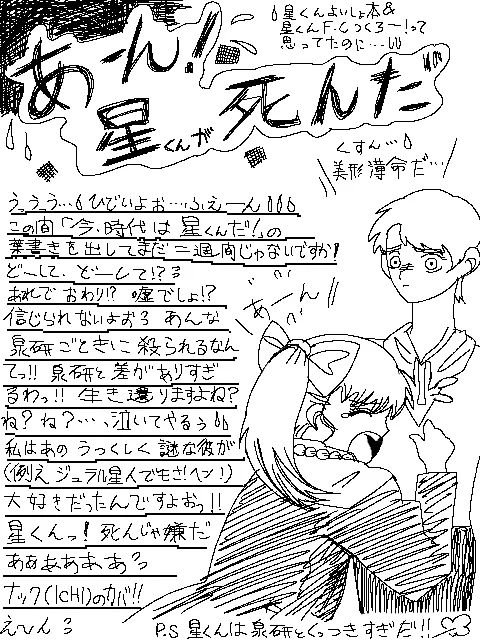 星くんよいしょ本&
星くんF・Cつくろ〜!って
思ってたのに…
あーん!
星くんが死んだ
くすん…
美形薄命だ…
えぅぅぅ…ひどいよお…ふえーん
この間「今、時代は星くんだ!」の
葉書きを出してまだ二週間じゃないですか!
どーして、どーして!?
あれでおわり!?嘘でしょ!?
信じられないよおろあんな
泉研ごときに殺られるなん
てっ!!泉研と差がありすぎ
るわっ!!生き還りますよね?
ね?ね?…っ泣いてやるぅ
私はあのうつくしく謎な彼が
(例えジュラル星人でもさ!ヘン!)
大好きだったんですよおっ!!
星くんっ!死んじゃ嫌だ
ああああああっ
ナック(ICHI)のカバ!!
えひん
あーん
P.S星くんは泉研とくっつきすぎだ!!